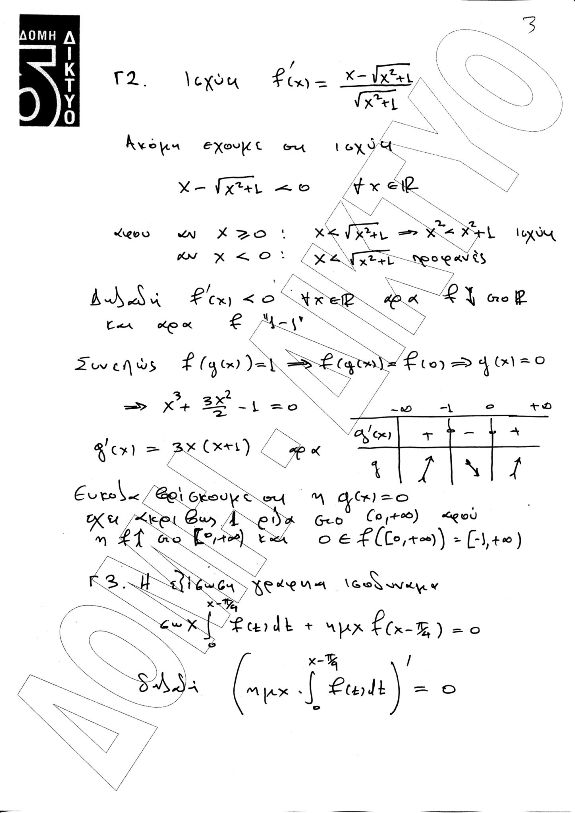 3
ΔΟΜΗ
ΔΙΚΤΥΟ
Γ2. Ισχύει f'(x) = (x-√(x²+1))/√(x²+1)
Ακόμη έχουμε οτι ισχύει
x - √(x²+1) < 0 ∀x∈ℝ
αφου αν x ≥ 0 : x < √(x²+1) ⇒ x² < x²+1 ισχύει
αν x < 0 : x < √(x²+1) προφανές
Δηλαδή f'(x) < 0 ∀x∈ℝ αρα f ↓ στο ℝ
και αρα f "1-1"
Συνεπώς f(g(x))=1 ⇒ f(g(x))=f(0) ⇒ g(x)=0
⇒ x³ + 3x²/2 - 1 = 0
-∞ -1 0 +∞
g'(x) = 3x(x+1) αρα
g'(x) + - +
g ↗ ↘ ↗
Ευκολα βρίσκουμε οτι η g(x)=0
εχει ακριβως 1 ριζα στο (0,+∞) αφού
η f↑ στο [0,+∞) και 0 ∈ f([0,+∞)) = [-1,+∞)
Γ3. Η εξίσωση γραφεται ισοδυναμα
συνx ∫₀^(x-π/4) f(t)dt + ημx f(x-π/4) = 0
δηλαδή (ημx · ∫₀^(x-π/4) f(t)dt)' = 0
ΔΟΜΗ · ΔΙΚΤΥΟ